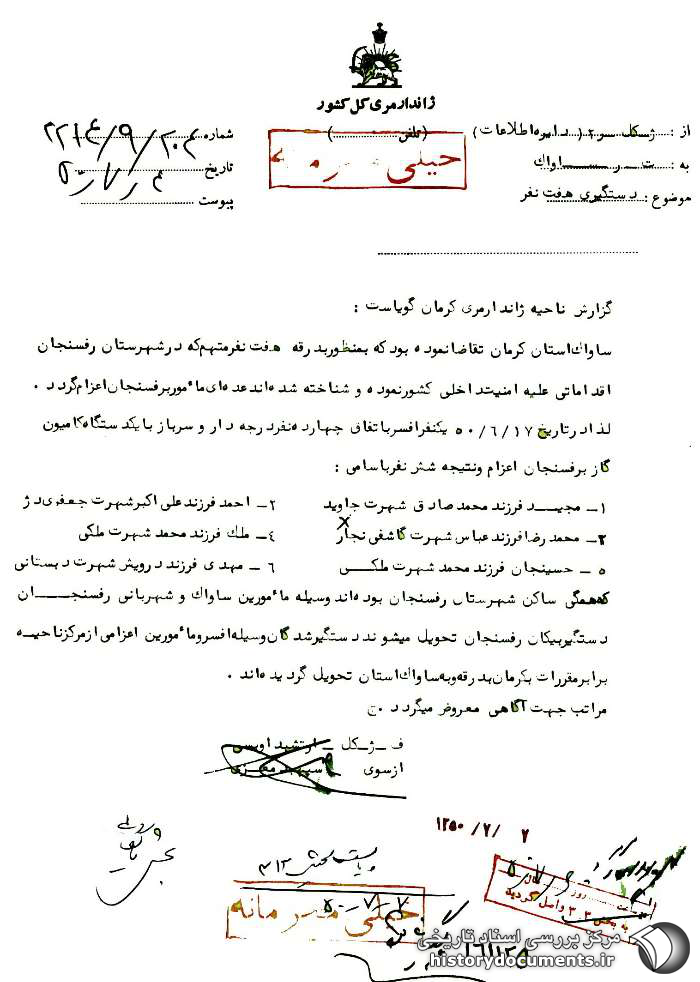 ژاندارمری کل کشور
از : ژ کل - ر۲ ( دایره اطلاعات ) (تلفن )
شماره ۲۲۱۴/۹/۲۰۲
به : ت . ر . ساواک
خیلی محرمانه
تاریخ
موضوع : دستگیری هفت نفر
پیوست
گزارش ناحیه ژاندارمری کرمان گویاست :
ساواک استان کرمان تقاضا نموده بود که بمنظور بدرقه هفت نفر متهم که در شهرستان رفسنجان
اقداماتی علیه امنیت داخلی کشور نموده و شناخته شده اند عده ای مأمور برفسنجان اعزام گردد .
لذا در تاریخ ۵۰/۶/۱۷ یکنفر افسر باتفاق چهارده نفر درجه دار و سرباز با یکدستگاه کامیون
گاز برفسنجان اعزام ونتیجه شش نفر باسامی :
۱ــ مجیـــد فرزند محمد صادق شهرت جاوید ۲ــ احمد فرزند علی اکبر شهرت جعفری دژ
۳ــ محمد رضا فرزند عباس شهرت کاشفی نجار ۴ــ ملک فرزند محمد شهرت ملکی
۵ ــ حسینجان فرزند محمد شهرت ملکــی ۶ ــ مهدی فرزند درویش شهرت دبستانی
که همگی ساکن شهرستان رفسنجان بوده اند وسیله مأمورین ساواک و شهربانی رفسنجــان
دستگیر بیکان رفسنجان تحویل میشوند دستگیرشدگان وسیله افسر و مأمورین اعزامی از مرکز ناحیــه
برابر مقررات بکرمان بدرقه و به ساواک استان تحویل گردیده اند .
مراتب جهت آگاهی معروض میگردد . ج
ف ــ ژ ــ کل ــ ارتشبد اویسی
از سوی سپهبد
۱۲۵۰ /۷/ ۲
ریاست بخش ۳۱۲
۵۰-۷-۷
خیلی محرمانه
ساعت روز سال
به بخش ۳۰۳ واصل گردید
۱۶۱۱۲۵
مرکز بررسی اسناد تاریخی
historydocuments.ir